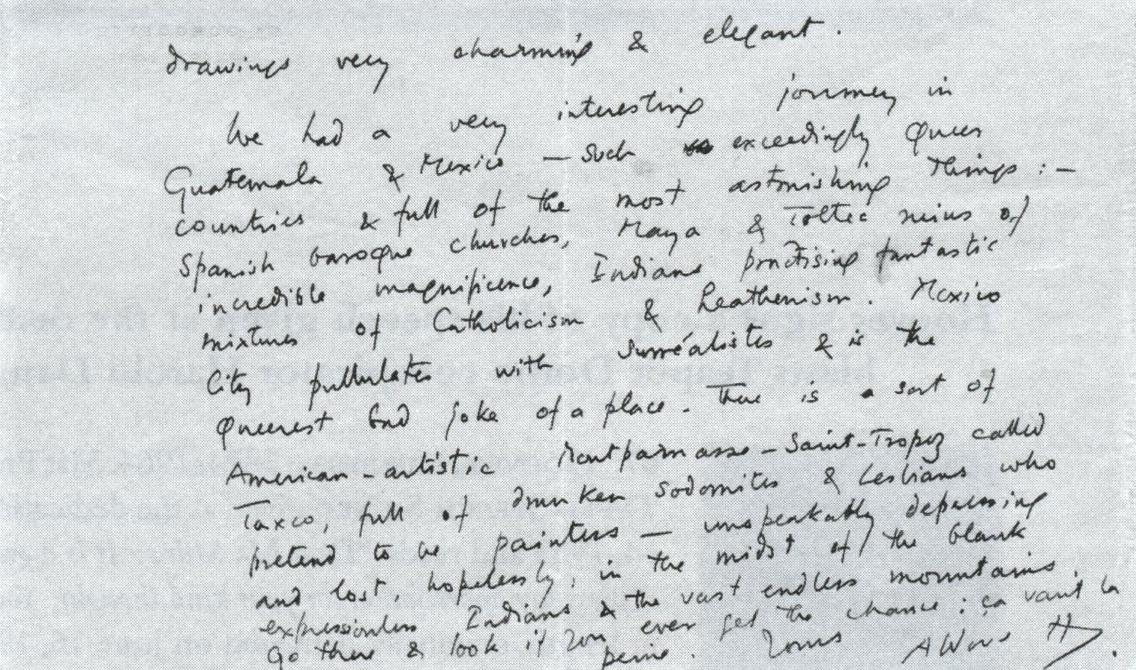 drawings very charming & elegant.
We had a very interesting journey in
Guatemala & Mexico — such exceedingly queer
countries & full of the most astonishing things : —
Spanish baroque churches, Maya & Toltec ruins of
incredible magnificence, Indians practising fantastic
mixtures of Catholicism & heathenism. Mexico
City pullulates with Surréalistes & is the
queerest bad joke of a place. There is a sort of
American-artistic Montparnasse-Saint-Tropez called
Taxco, full of drunken sodomites & Lesbians who
pretend to be painters — unspeakably depressing
and lost hopelessly, in the midst of the blank
expressionless Indians & the vast endless mountains.
Go there & look if you ever get the chance; ça vaut la
peine. Yours